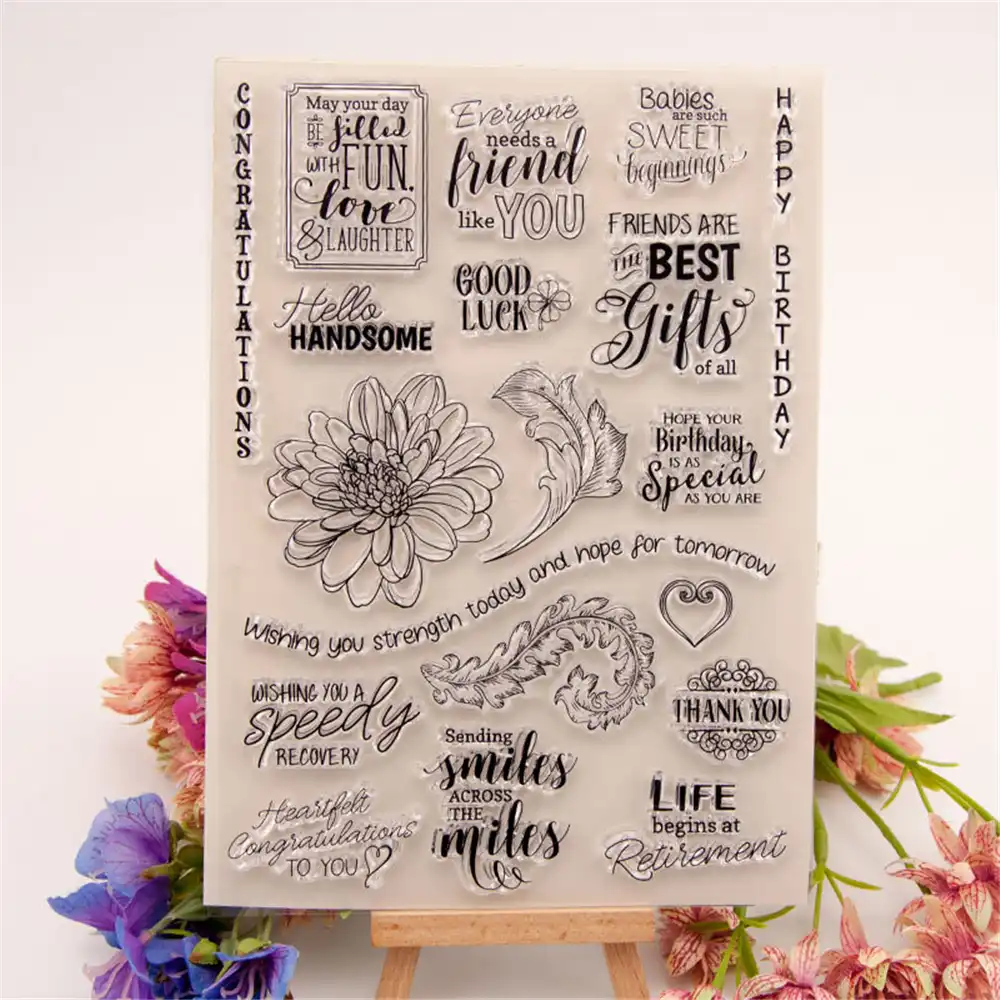 CONGRATULATIONS
May your day
BE filled
WITH FUN,
love
& LAUGHTER
Everyone
needs a
friend
like YOU
Babies
are such
SWEET
beginnings
HAPPY BIRTHDAY
Hello
HANDSOME
GOOD
LUCK
FRIENDS ARE
THE BEST
Gifts
of all
HOPE YOUR
Birthday
IS AS
Special
AS YOU ARE
Wishing you strength today and hope for tomorrow
WISHING YOU A
speedy
RECOVERY
THANK YOU
Sending
smiles
ACROSS
THE
miles
Heartfelt
Congratulations
TO YOU
LIFE
begins at
Retirement